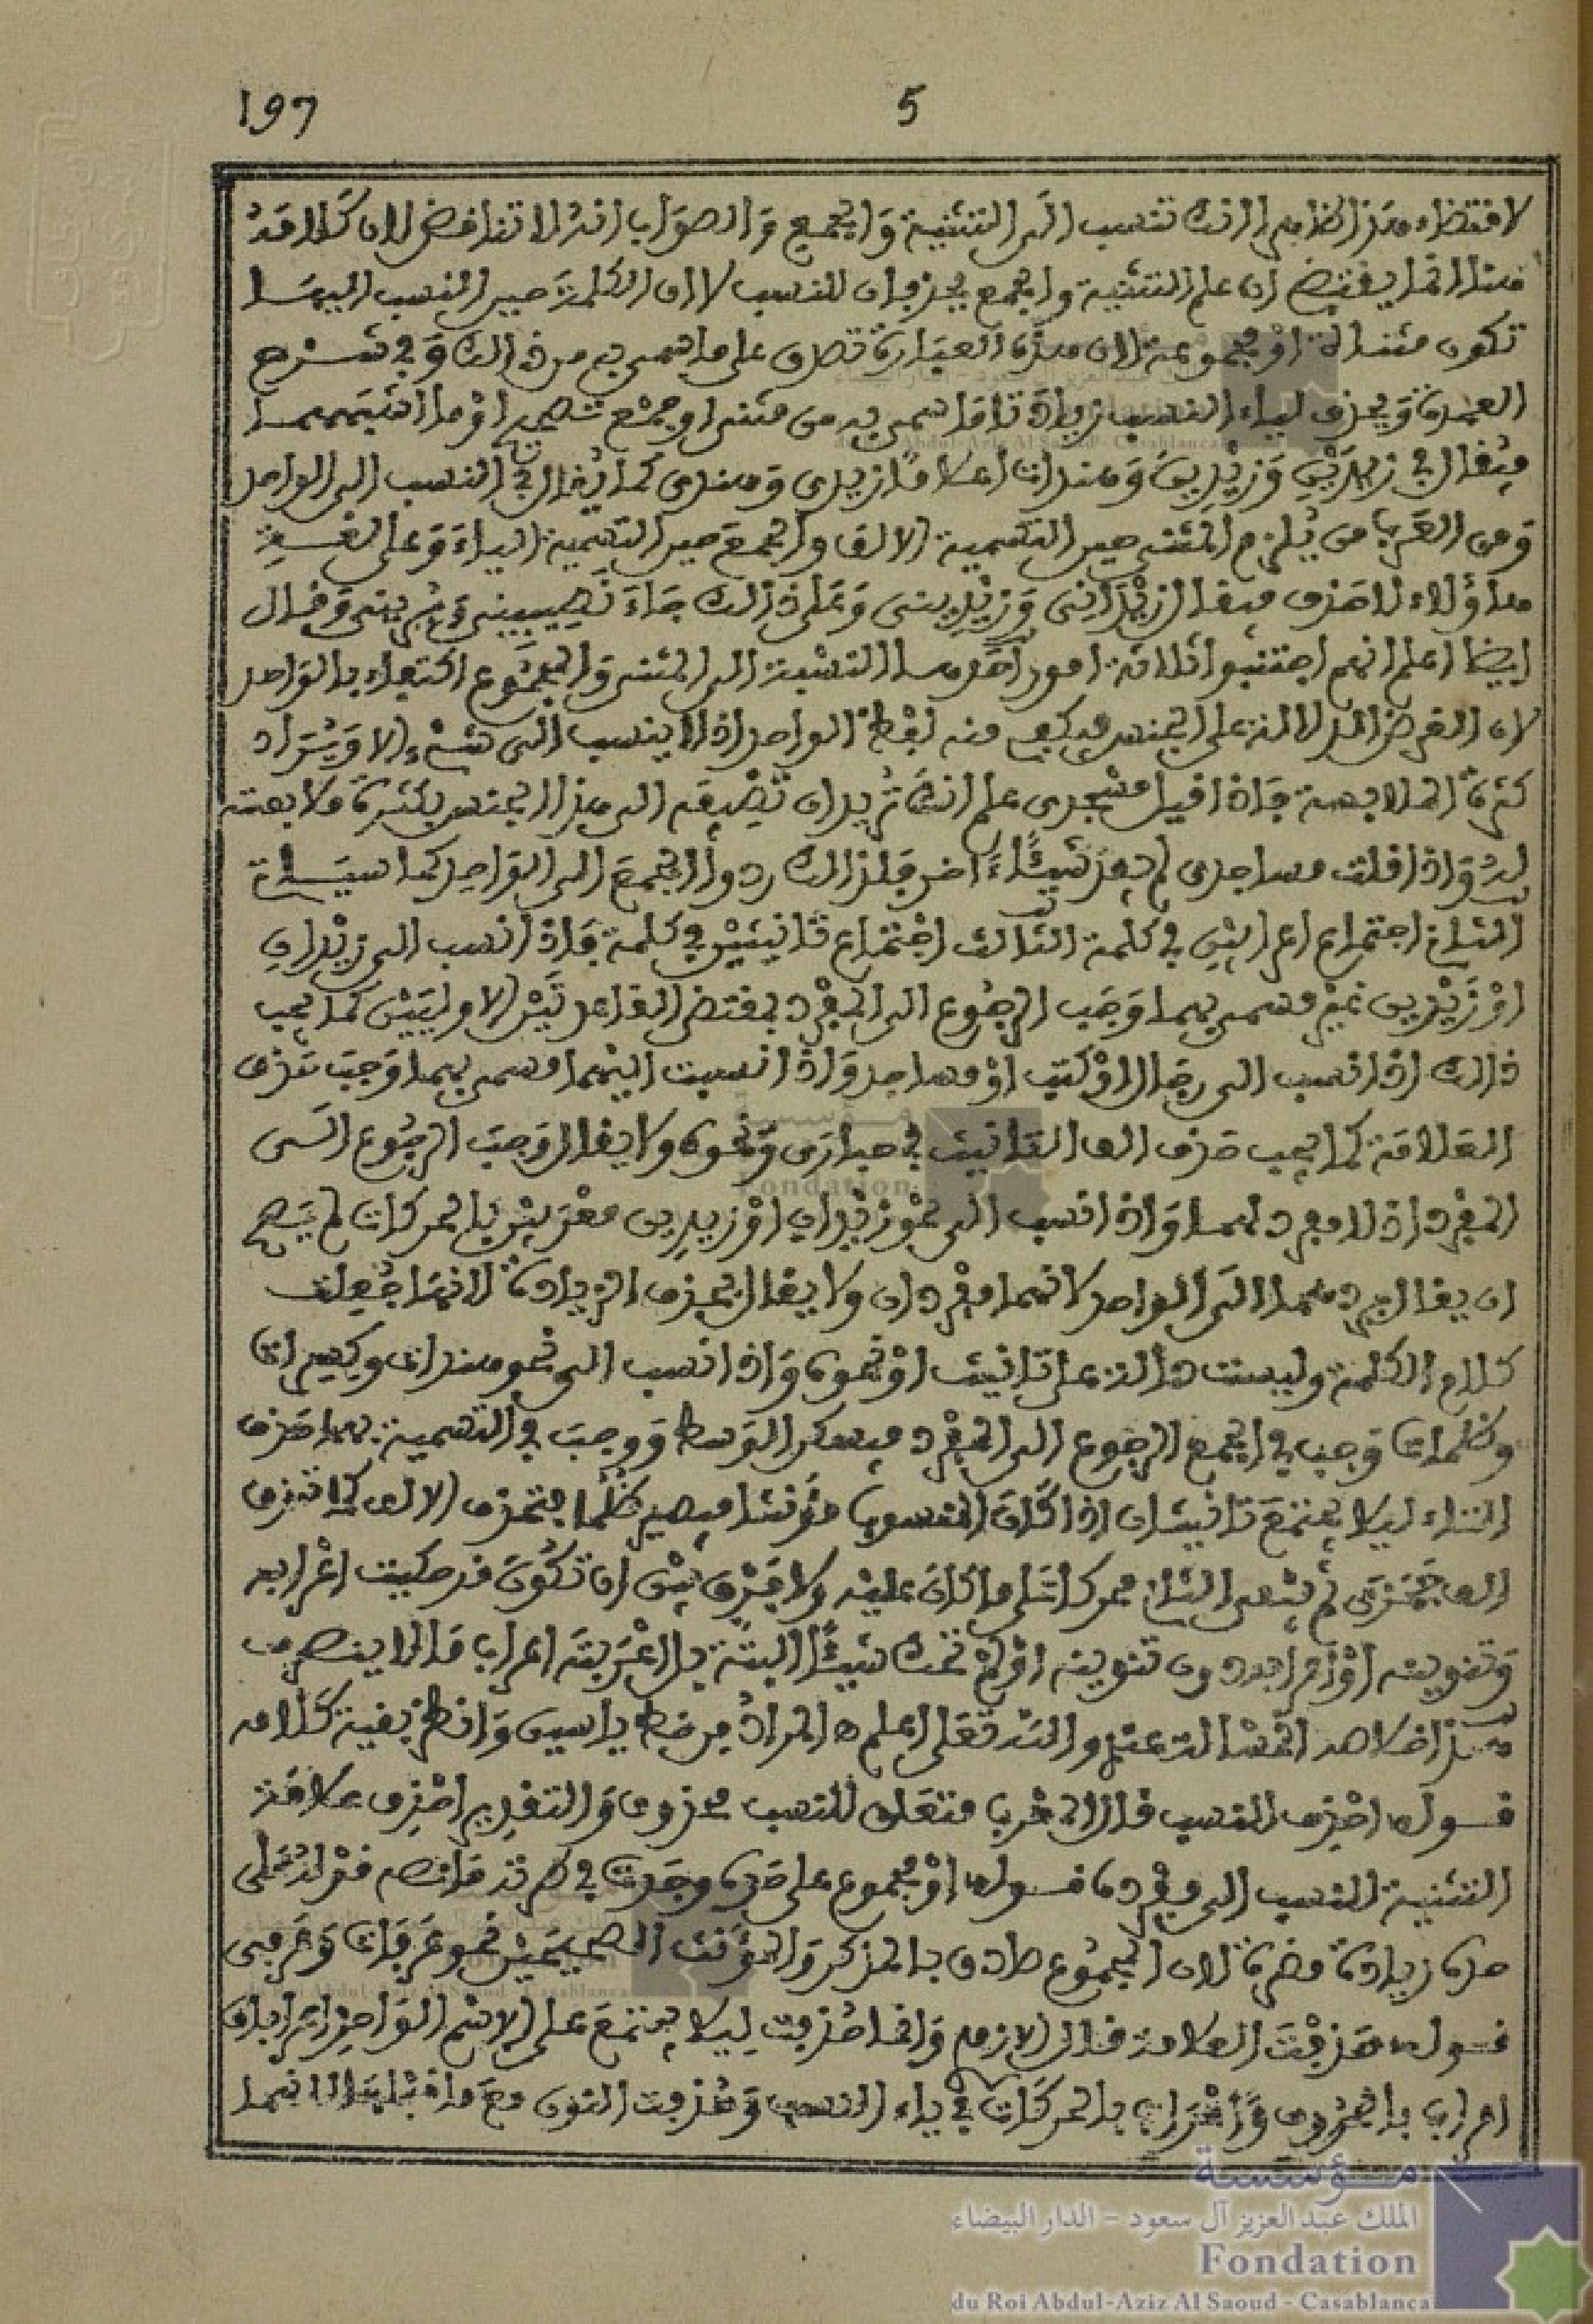 197
5
لاقتضاء هذا الظاهر انك تنسب الى التثنية والجمع والصواب انه لا تناقض لان كلامه
هنا انما يقتضي ان علم التثنية والجمع يحذفان للنسب لا ان الكلمة حين النسب اليها
تكون مثناة او مجموعة لان هذه العبارة تصدق على ما سمي به من ذالك وفي شرح
العمدة ويحذف لياء النسب زيادتا ما سمي به من مثنى او جمع تصحيح او ما اشبههما
فيقال في زيدين وزيدين وهندات اعلاما زيدى وهندى كما يقال في النسب الى الواحد
ومن العرب من يلزم المثنى حين التسمية الالف والجمع حين التسمية الياء وعلى لغة
هاؤلاء لا حذف فيقال زيداني وزيديني وعلى ذالك جاء نصيبيني وقال
ايضا اعلم انهم اجتنبوا ثلاثة امور احدها النسبة الى المثنى والمجموع اكتفاء بالواحد
لان الغرض الدلالة على الجنس فيكفي منه لفظ الواحد اذ لا ينسب الى شيء الا ويراد
كثرة الملابسة فاذا قيل مسجدى علم انك تريد ان تضيفه الى هذا الجنس بكثرة ملابسته
له واذا قلت مساجدى لم يفد شيئا ءاخر فلذالك ردوا الجمع الى الواحد كما سياتي
الثاني اجتماع اعرابين في كلمة الثالث اجتماع تانيثين في كلمة فاذا نسب الى زيدان
او زيدين غير مسمى بهما وجب الرجوع الى المفرد بمقتضى القاعدتين الاوليين كما يجب
ذالك اذا نسب الى رجال او كتب او مساجد واذا نسبت اليهما مسمى بهما وجب حذف
العلامة كما يجب حذف الف التانيث في حبارى ونحوه ولا يقال وجب الرجوع الى
المفرد اذ لا مفرد لهما واذا نسب الى نحو زيدان او زيدين معربين بالحركات لم يصح
ان يقال يرد هما الى الواحد لانهما مفردان ولا يقال بحذف الزيادة لانها جعلت
كلام الكلمة وليست دالة على تانيث او نحوه واذا نسب الى نحو هندات وكسرات
وظلمات وجب في الجمع الرجوع الى المفرد فيسكن الوسط ووجب في التسمية بهما حذف
التاء ليلا يجتمع تانيثان اذا كان المنسوب مؤنثا فيصير ظلما فتحذف الالف كما تحذف
الف جمزى ثم يبقى الثاني محركا على ما كان عليه ولا فرق بين ان تكون قد حكيت اعرابه
وتنوينه او اعرابه دون تنوينه او لم تحك شيئا البتة بل اعربته اعراب ما لا ينصرف
هذا خلاصة المسالة عندي والله تعلى اعلم ه المراد من خط ياسين وانظر بقية كلامه
قوله احذف للنسب قال المعرب متعلق للنسب محذوف والتقدير احذف علامة
التثنية للنسب الى مفرده قوله او مجموع على حده وجدت في طرته ما نصه قوله على
حده زيادة مضرة لان المجموع صادق بالمذكر والمؤنث الصحيحين نحو عرفات وعرفى
قوله حذفت العلامة قال الازهري وانما حذفت ليلا يجتمع على الاسم الواحد اعرابان
اعراب بالحروف واعراب بالحركات في ياء النسب وحذفت النون مع ما قبلها لانهما
مؤسسة
الملك عبد العزيز آل سعود - الدار البيضاء
Fondation
du Roi Abdul-Aziz Al Saoud - Casablanca